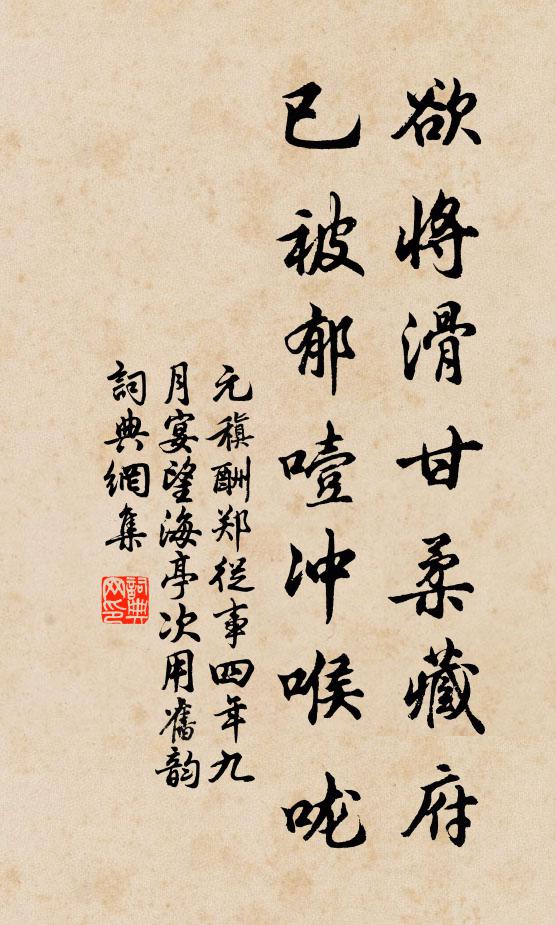 欲将滑甘柔藏府
已被郁噎冲喉咙
元稹酬郑从事四年九
月宴望海亭次用舊韵
詞典網集
詞典网印